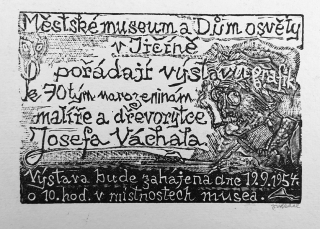 Městské museum a Dům osvěty
v Jičíně
pořádají výstavu grafik
k 70tým narozeninám
malíře a dřevorytce
Josefa Váchala.
Výstava bude zahájena dne 12.9.1954.
o 10.hod. v místnostech musea.